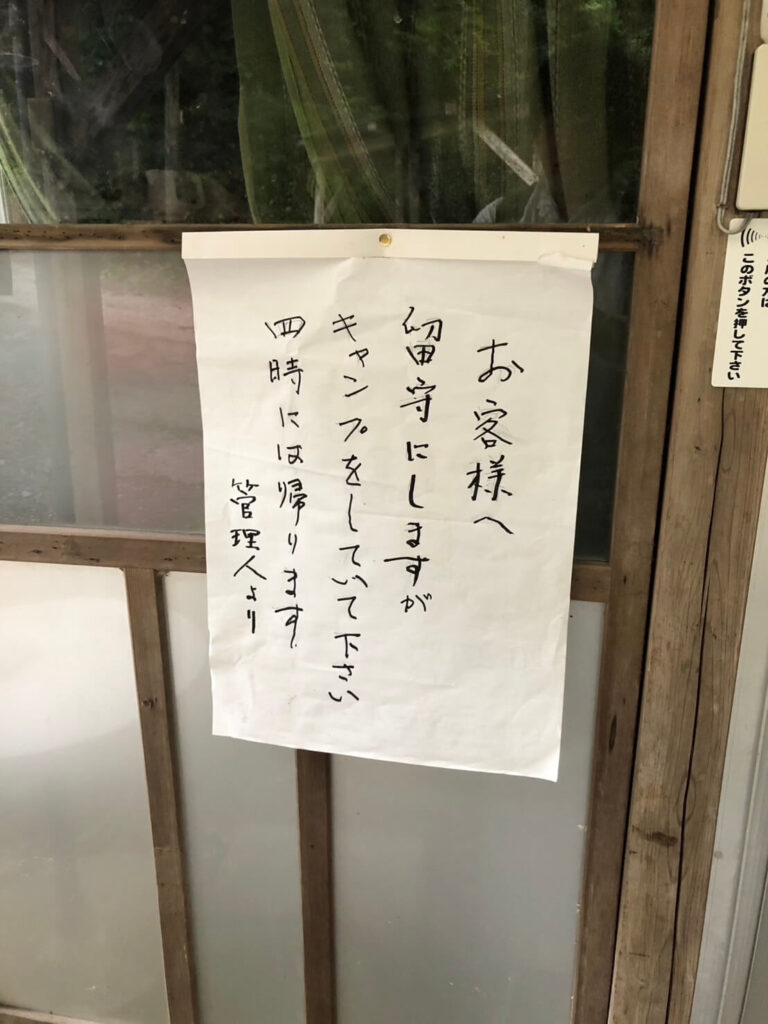 お客様へ
留守にしますが
キャンプをしていて下さい
四時には帰ります
管理人より
このボタンを押して下さい